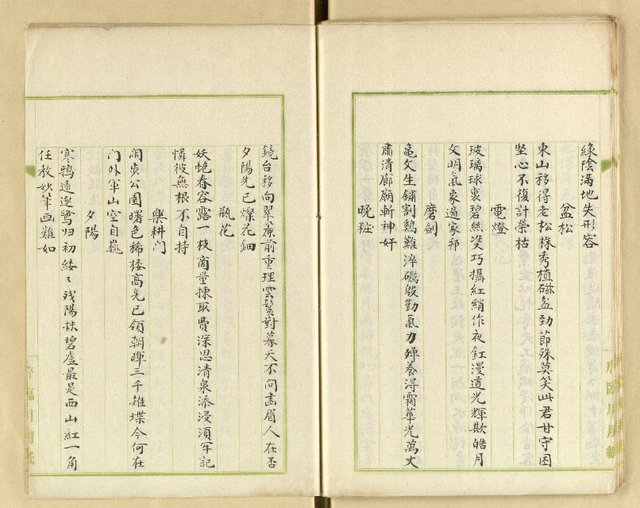 綠陰滿地失形容
盆松
東山移得老松株秀植磁盆勁節殊莫笑此君甘守困
堅心不復計榮枯
電燈
玻璃球裹碧絲燙巧攝紅綃作夜釭漫道光輝欺皓月
文明氣象遍家邦
磨劍
龜文生鏽割鷄難淬礪殷勤氣力殫養得霜華光萬丈
肅清廊廟斬神奸
晚妝
鏡台移向翠簾前重理雲鬟對暮天不問畫眉人在否
夕陽先已燦花鈿
瓶花
妖艷春容露一枝商量揀取費深思清泉添浸須牢記
憐彼無根不自持
樂耕門
開炎公園曙色稀樓高先已領朝暉三千雉堞今何在
門外軍山空自巍
夕陽
寒鴨遠邊鷺归初縷〻殘陽抹碧虛最是西山紅一角
任教妙筆画難如